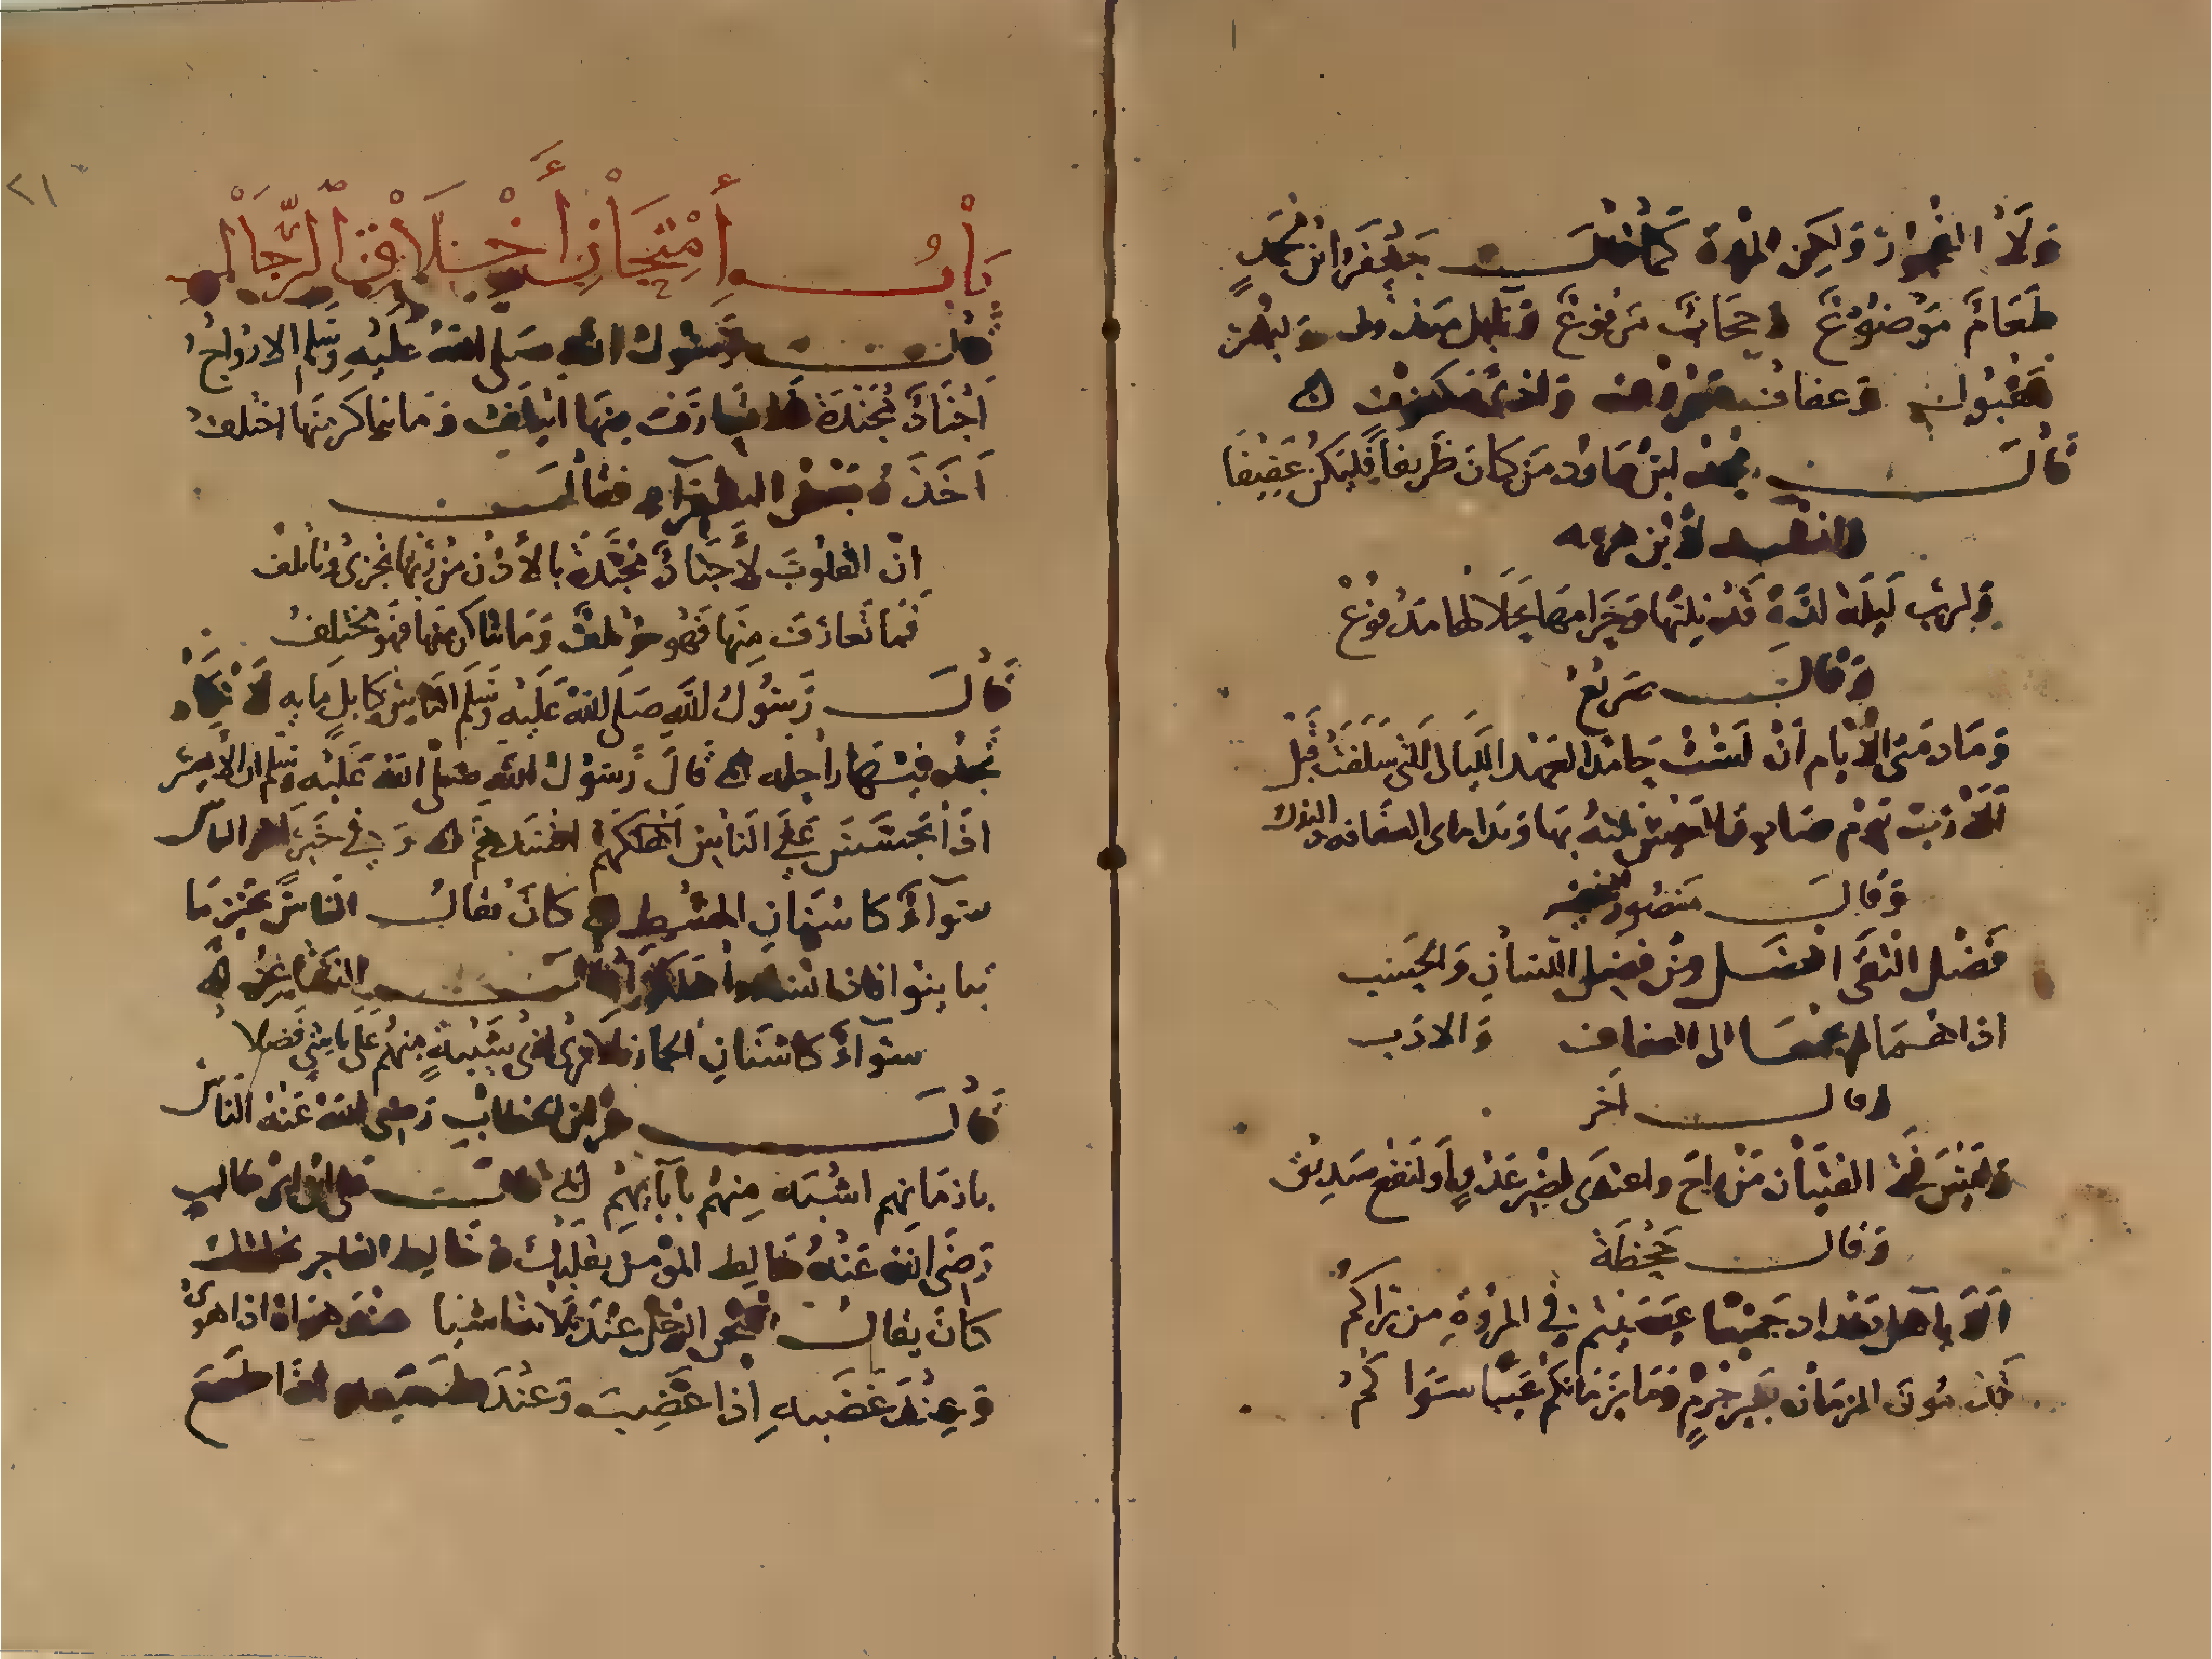 ولا الفجور ولكن المروة كما قال جعفر ابن محمد
طعام موضوع وحجاب مرفوع ونايل مبذول وبشر
مقبول وعفاف معروف واذى مكفوف
قال محمد ابن داود من كان ظريفا فليكن عفيفا
وانشد لابن هرمه
ولرب ليلة لذة قد نلتها وحرامها بحلالها مدفوع
وقال صريع
وما ذمي الايام ان لست حامدا لعهد الليالي التي سلفت قبل
الا رب يوم صادق العيش نلته بها ونداماى العفافه والبذل
وقال منصور الفقيه
فضل التقى افضل من فضل اللسان والحسب
اذا هما لم يجمعا الى العفاف والادب
وقال آخر
وليس فتى الفتيان من راح واغتدى لضر عدو او لنفع صديق
وقال جحظة
الا يا اهل بغداد جميعا عققتم في المروة من يراكم
تذمون الزمان بغير جرم وما بزمانكم عيبا سواكم
٢١
باب امتحان أخلاق الرجال
قال رسول الله صلى الله عليه وسلم الارواح
اجناد مجندة فما تعارف منها ايتلف وما تناكر منها اختلف
اخذه بعض الشعراء فقال
ان القلوب لأجناد مجندة بالأذن من ربها تجري وتاتلف
فما تعارف منها فهو مؤتلف وما تناكر منها فهو مختلف
قال رسول الله صلى الله عليه وسلم الناس كابل مايه لا تكاد
تجد فيها راحله قال رسول الله صلى الله عليه وسلم ان الأمير
اذا تجسس على الناس اهلكهم او افسدهم وفي خبر اخر الناس
سوآء كاسنان المشط كان يقال الناس بخير ما
تباينوا فاذا تساووا هلكوا قال الشاعر
سوآء كاسنان الحمار فلا ترى لذي شيبة منهم على ناشئ فضلا
قال عمر ابن الخطاب رضى الله عنه الناس
بازمانهم اشبه منهم بآبآئهم قال علي ابن ابي طالب
رضى الله عنه خالط المؤمن بقلبك وخالط الفاجر بخلقك
كان يقال امتحن الرجل عند ثلاث اشيا عند هواه اذا هوى
وعند غضبه إذا غضب وعند طمعه اذا طمع